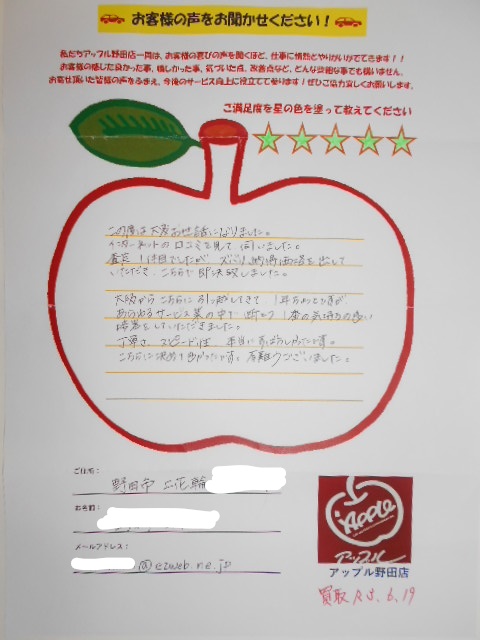 お客様の声をお聞かせください！
私たちアップル野田店一同は、お客様の喜びの声を聞くほど、仕事に情熱とやりがいがでてきます！！
お客様の感じた良かった事、嬉しかった事、気づいた点、改善点など、どんな些細な事でも構いません。
お寄せ頂いた皆様の声をふまえ、今後のサービス向上に役立てて参ります！ぜひご協力宜しくお願いします。
ご満足度を星の色を塗って教えてください
この度は大変お世話になりました。
インターネットの口コミを見て伺いました。
査定1件目でしたが、ズバリ納得価格を出して
いただいて、こちらで即決致しました。
大阪からこちらに引っ越してきて1年ちかくですが、
あらゆるサービス業の中で1番の気持ちの良い
接客をしていただきました。
丁寧さ、スピード性、本当にすばらしかったです。
こちらに決めて良かったです。有難うございました。
ご住所：
野田市 上花輪
お名前：
メールアドレス：
@ezweb.ne.jp
Apple
アップル
アップル野田店
買取 R5.6.19